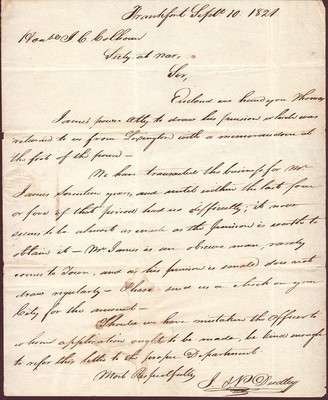 Frankfort Sept. 10. 1821
J. C. Calhoun
Secty at war,
Sir,
Enclosed we hand you Thomas
James power Atty. to draw his pension which was
returned to us from Lexington with a memorandum at
the foot of the power—
We have transacted the business for Mr.
James years, and until within the last four
or five of that period had no difficulty; it now
seems to be almost as much as the pension is worth to
obtain it— Mr James is an obscure man, rarely
comes to Town, and as his pension is small does not
draw regularly— Please send us a check on your
City for the amount—
Should we have mistaken the Officer to
whom application ought to be made, be kind enough
to refer this letter to the proper Department
Most Respectfully
Dudley